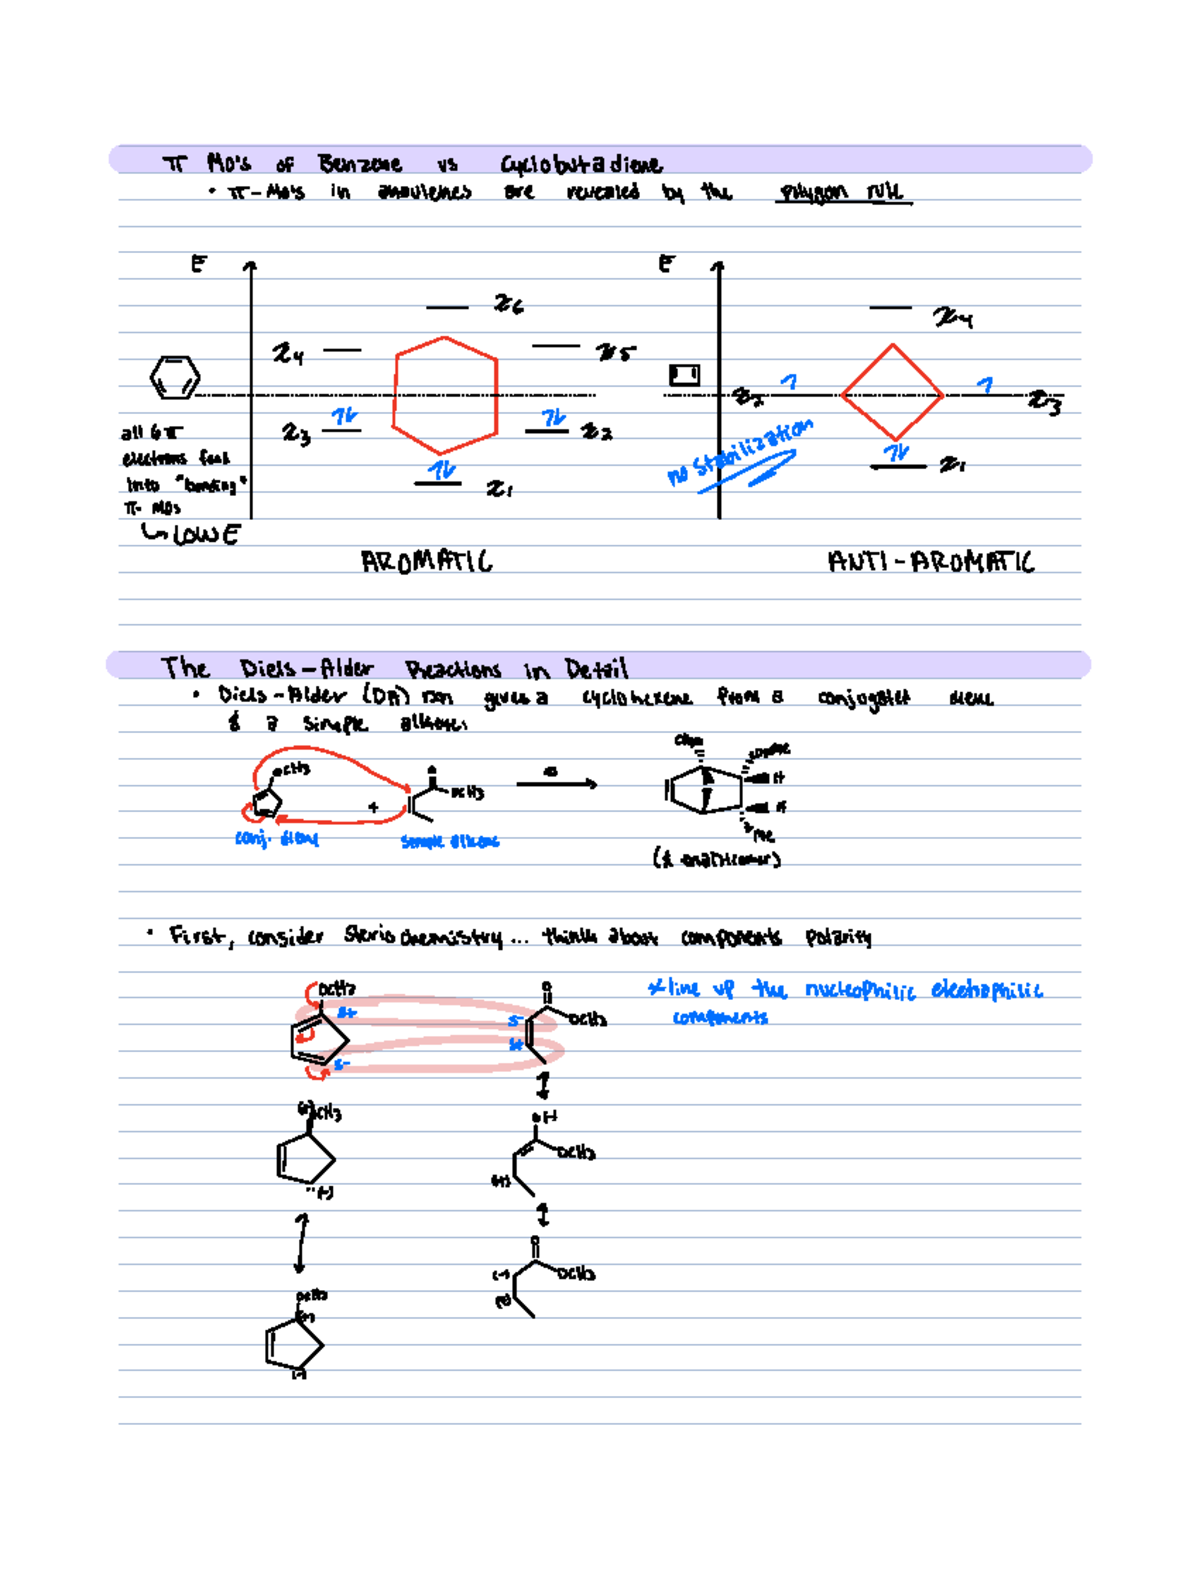 π MO's of Benzene vs Cyclobutadiene
• π-MO's in annulenes are revealed by the polygon rule
E E
π6 π4
π4 π5
π2 π3
π3 π2
all 6 π
electrons feed
into "bonding"
π- MOs
↳ LOW E
no stabilization
π1 π1
AROMATIC ANTI-AROMATIC
The Diels-Alder Reactions in Detail
• Diels-Alder (DA) rxn gives a cyclohexene from a conjugated diene
& a simple alkene.
OCH3 + O OCH3
conj. diene simple alkene
H
H
Me
(& enantiomer)
• First, consider Stereochemistry... think about components polarity
OCH3 δ+ δ- O OCH3 δ- δ+
* line up the nucleophilic electrophilic
components
(+) OCH3 (-)
OCH3 (+)
OCH3 (+) (-)
O OCH3 (-) (+)